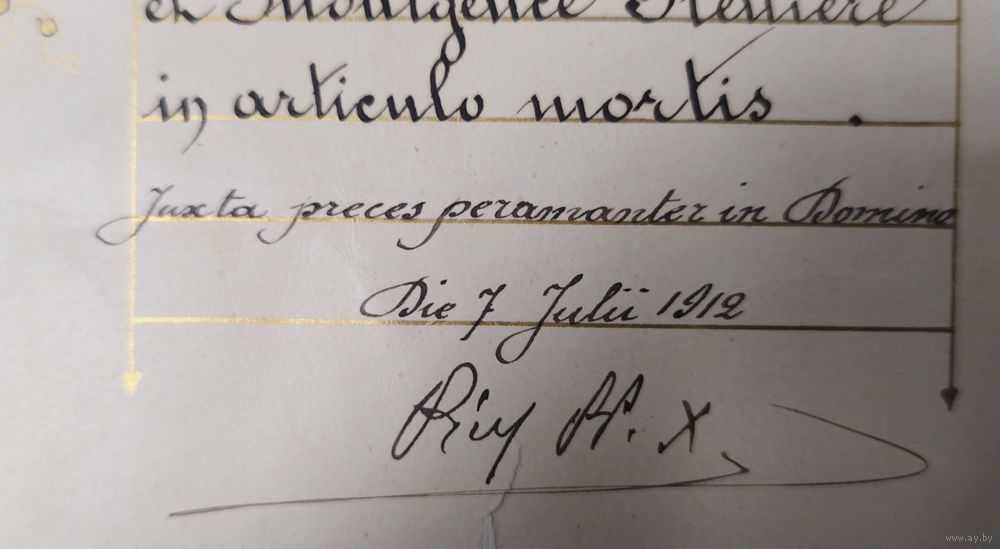 et Indulgence Plénière
in articulo mortis.
Juxta preces peramanter in Domino
Die 7 Julii 1912
Pius PP. X
www.ay.by